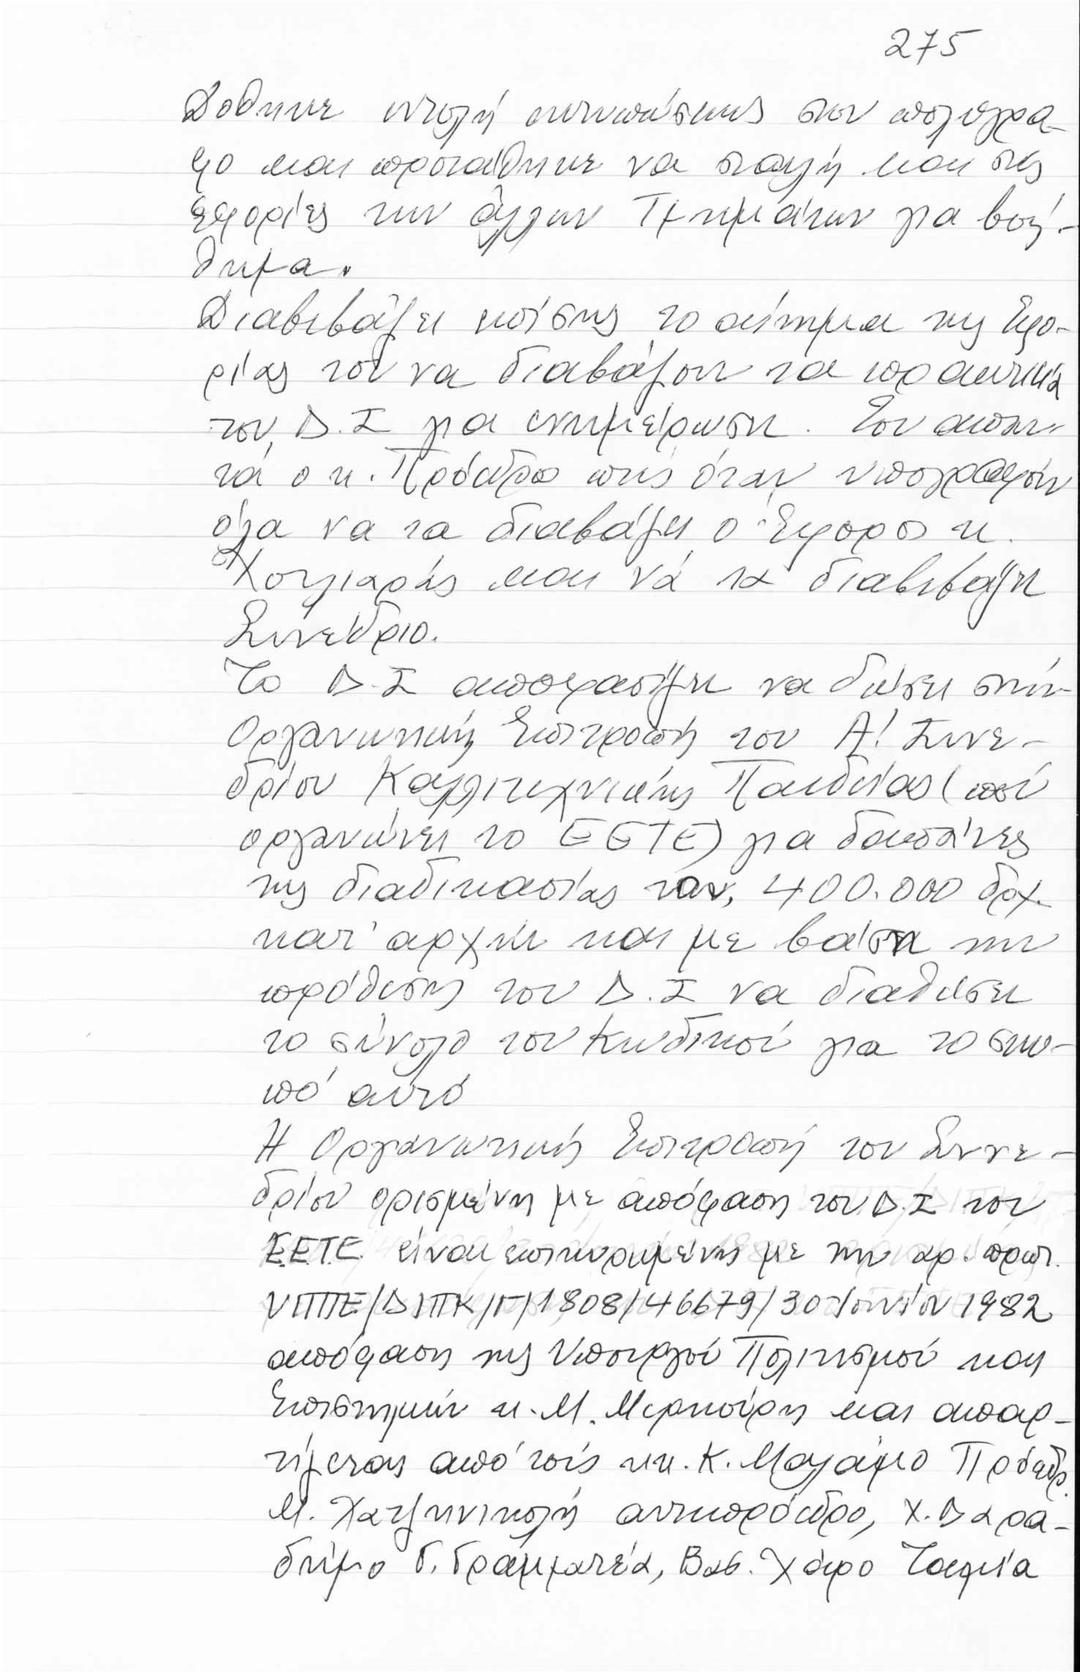 275
Δόθηκε εντολή εκτυπώσεως στον πολυγρα-
φο και προτάθηκε να σταλή και στις
εφορίες των άλλων Τμημάτων για βοή-
θημα.
Διαβιβάζει επίσης το αίτημα της Εφο-
ρίας του να διαβάζουν τα πρακτικά
του Δ.Σ για ενημέρωση. Του απαν-
τά ο κ. Πρόεδρο πως όταν υπογραφούν
όλα να τα διαβάζει ο Έφορος κ.
Χουλιαράς και νά τα διαβιβάζη
Συνέδριο.
Το Δ.Σ αποφασίζει να δώσει στήν
Οργανωτική Επιτροπή του Α! Συνε-
δρίου Καλλιτεχνικής Παιδείας (πού
οργανώνει το ΕΕΤΕ) για δαπάνες
της διαδικασίας του, 400.000 δρχ.
κατ' αρχήν και με βάση την
πρόθεση του Δ.Σ να διαθέσει
το σύνολο του Κωδικού για το σκο-
πό αυτό
Η Οργανωτική Επιτροπή του Συνε-
δρίου ορισμένη με απόφαση του Δ.Σ του
Ε.Ε.Τ.Ε. είναι επικυρωμένη με την αρ. πρωτ.
ΥΠΠΕ/ΔΙΠΚ/Γ/1808/46679/30 Ιουνίου 1982
απόφαση της Υπουργού Πολιτισμού και
Επιστημών κ. Μ. Μερκούρη και απαρ-
τίζεται από τούς κκ. Κ. Μαλάμο Πρόεδρ.
Μ. Χατζηνικολή αντιπρόεδρο, Χ. Δαρα-
δήμο Γ. Γραμματέα, Βασ. Χάρο Ταμία